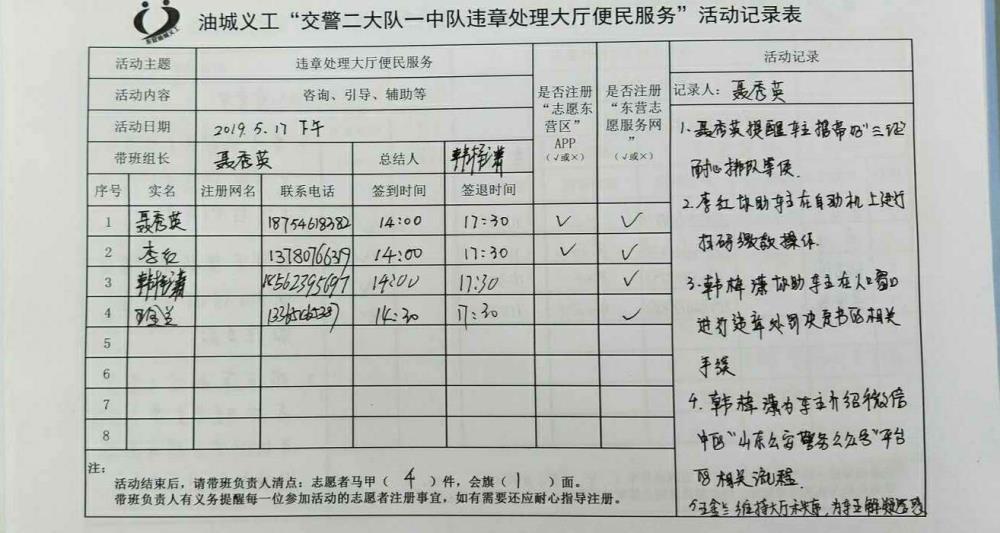 油城义工“交警二大队一中队违章处理大厅便民服务”活动记录表
活动主题 违章处理大厅便民服务
活动内容 咨询、引导、辅助等
活动日期 2019.5.17 下午
带班组长 聂秀英 总结人 韩梓潇
是否注册“志愿东营区”APP（√或×）
是否注册“东营志愿服务网”（√或×）
序号 实名 注册网名 联系电话 签到时间 签退时间
1 聂秀英 18754618382 14:00 17:30 √ √
2 李红 14:00 17:30 √ √
3 韩梓潇 15562395697 14:00 17:30 √
4 王金兰 14:30 17:30 √
5
6
7
8
注：
活动结束后，请带班负责人清点：志愿者马甲（ 4 ）件，会旗（ 1 ）面。
带班负责人有义务提醒每一位参加活动的志愿者注册事宜，如有需要还应耐心指导注册。
活动记录
记录人：聂秀英
1.聂秀英提醒车主携带好“三证
耐心排队等侯.
2.李红协助车主在自动机上进行
扫码缴款操作.
3.韩梓潇协助车主在人工窗口
进行违章处罚决定书的相关
手续
4.韩梓潇为车主介绍微信
中的“山东公安警务公众号”平台
的相关流程.
5王金兰维持大厅秩序,为车主解疑答惑